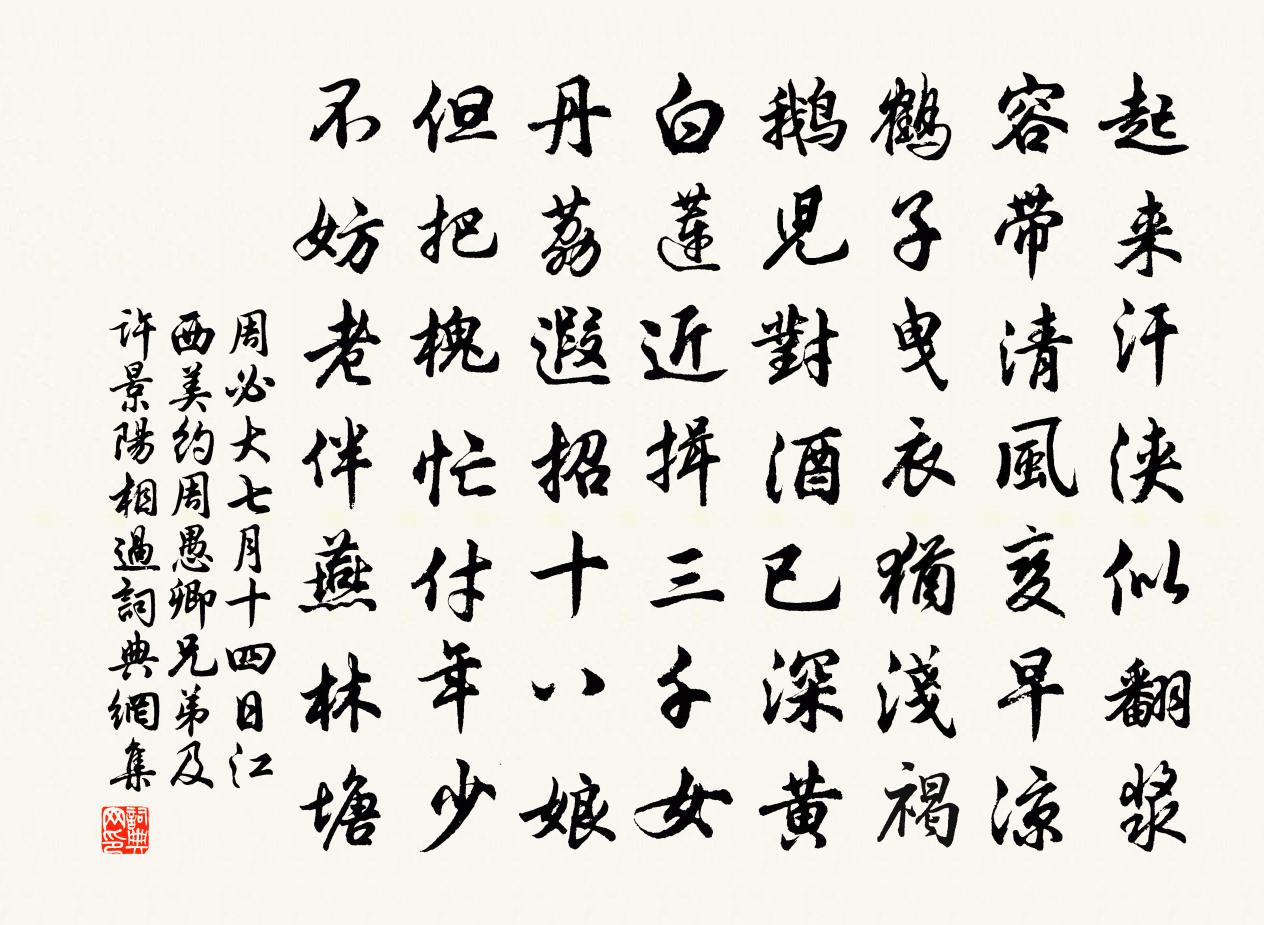 起来汗浃似翻浆
容带清風变早凉
鶴子曳衣猶淺褐
鵝兒對酒已深黄
白蓮近揖三千女
丹荔遐招十八娘
但把槐忙付年少
不妨老伴燕林塘
周必大七月十四日江
西美约周愚卿兄弟及
許景陽相過詞典網集
詞典网印